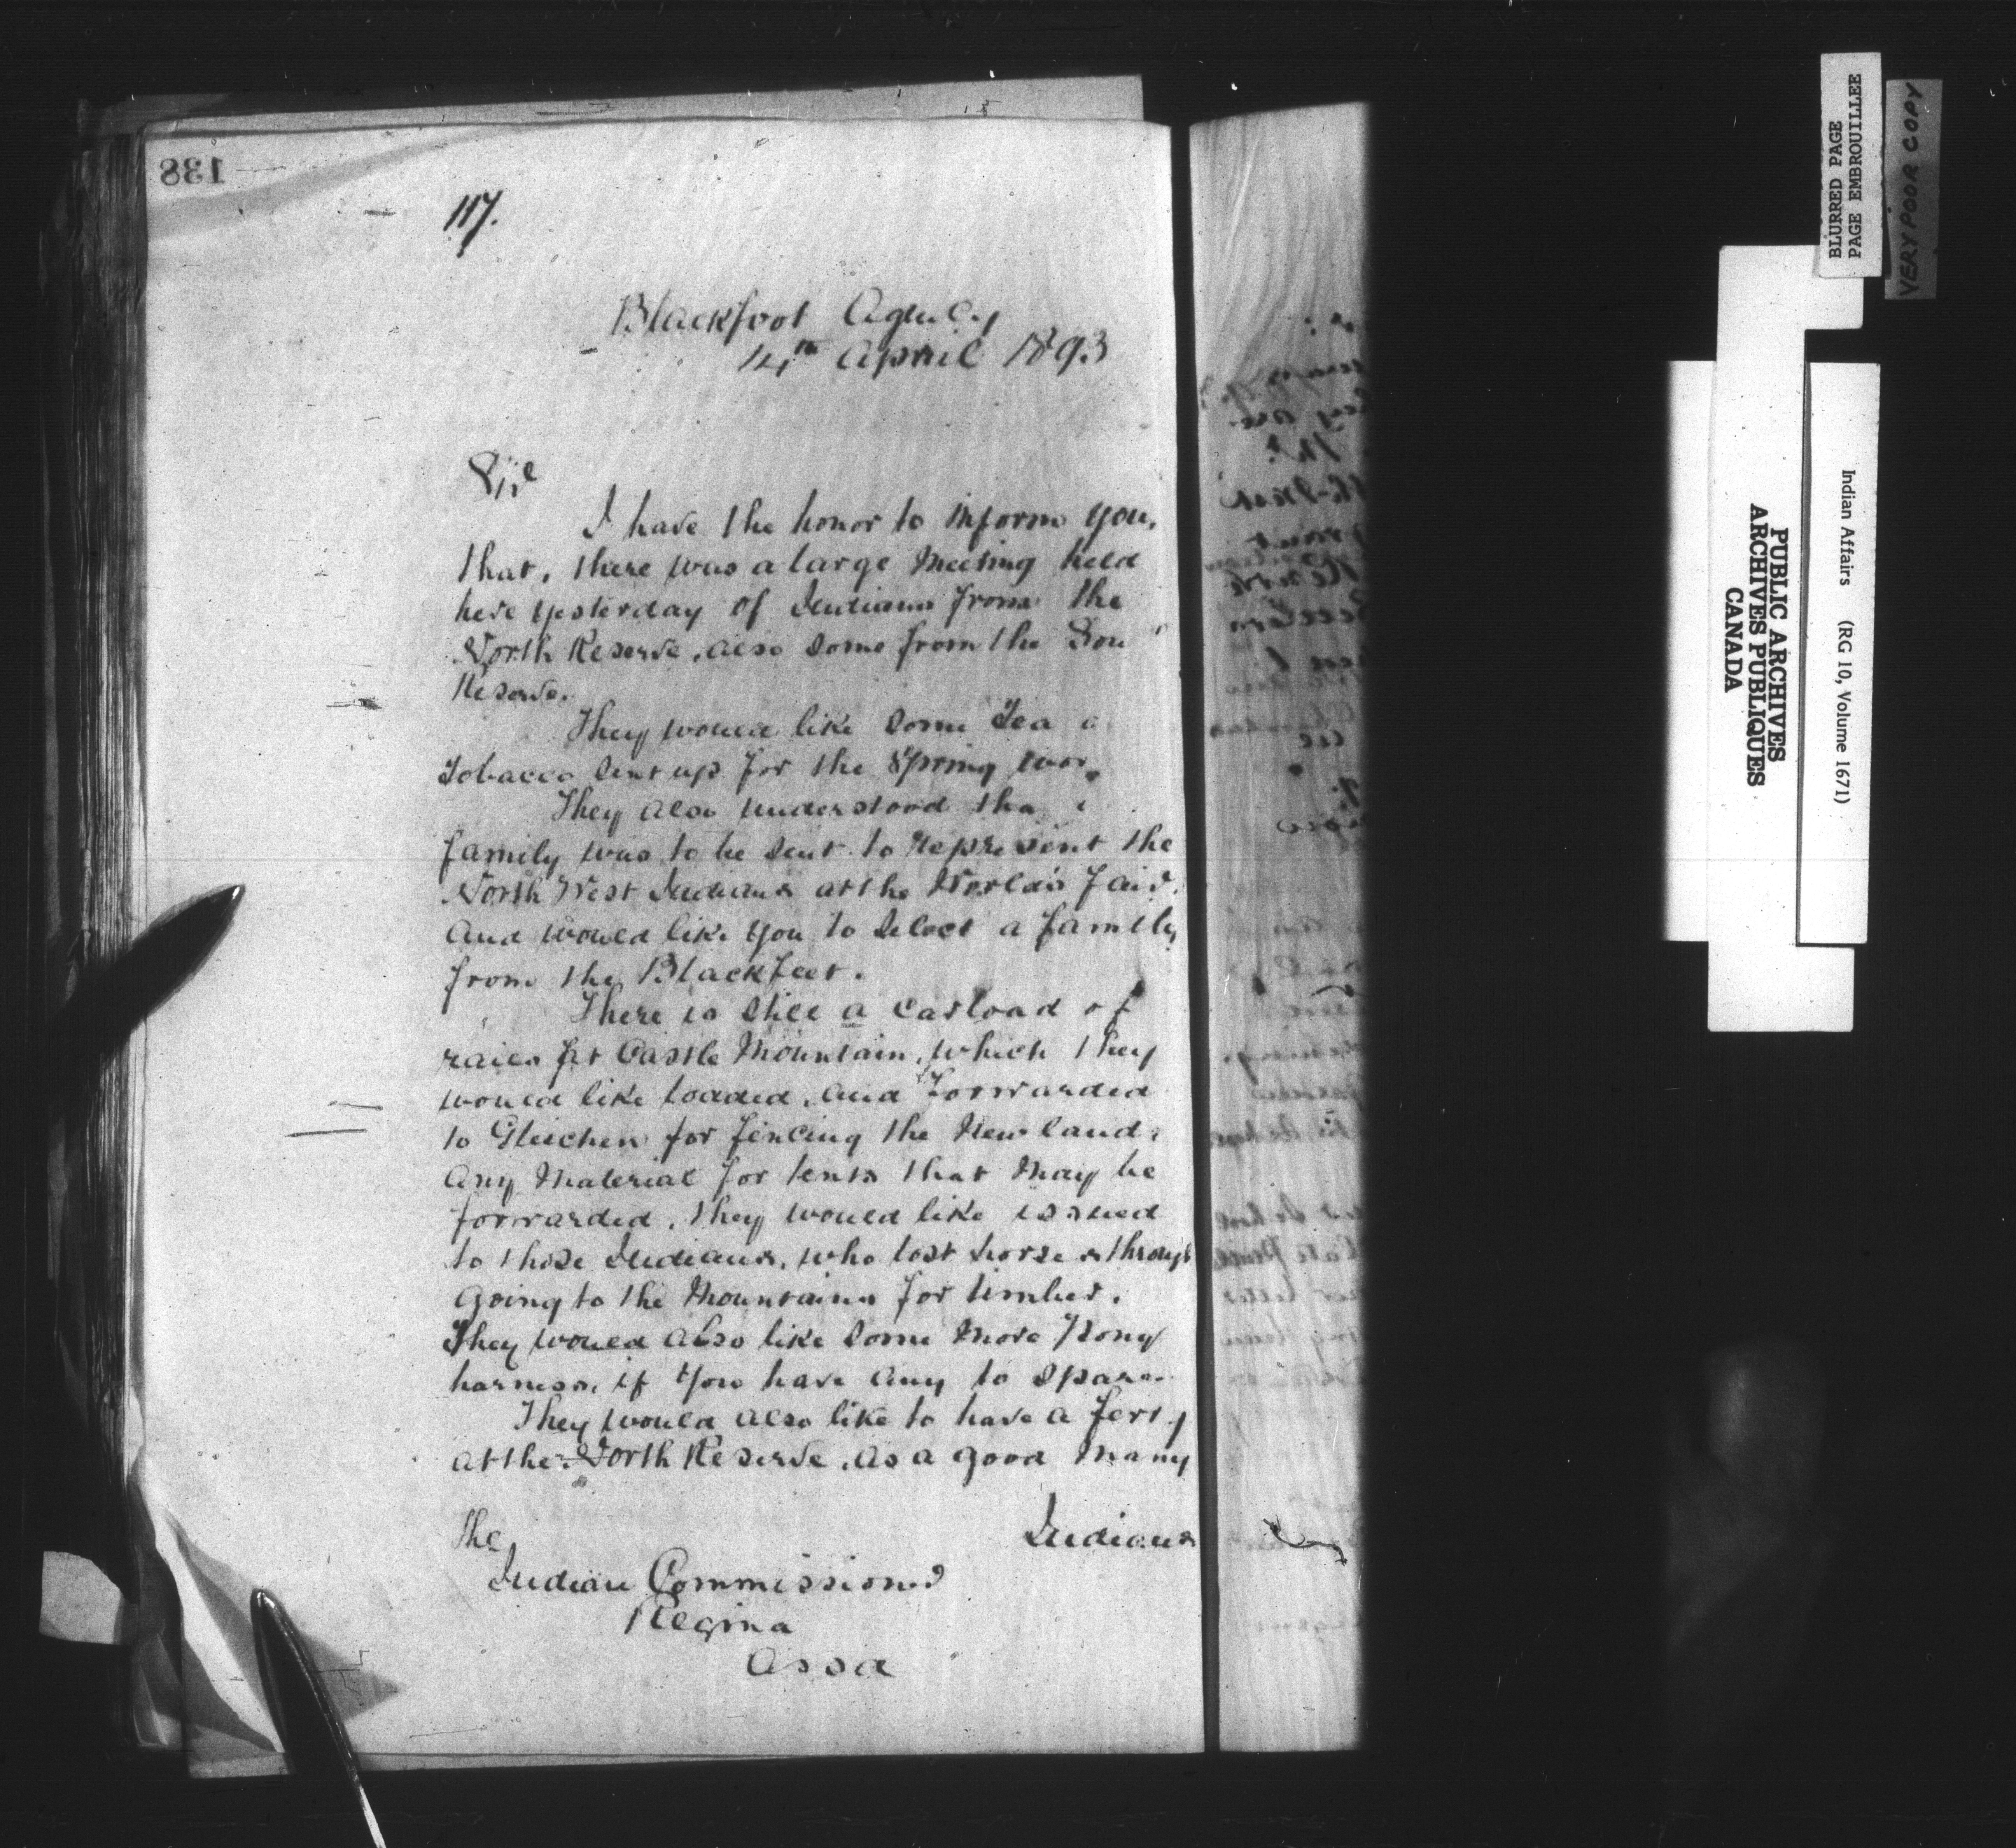 138
117.
Blackfoot Agency
14th April 1893
Sir
I have the honor to inform you,
that, there was a large Meeting held
here yesterday of Indians from the
North Reserve, also some from the Sou
Reserve.
They would like some Tea a
Tobacco sent up for the Spring wor
They also understood tha
family was to be sent to represent the
North West Indians at the World's Fair.
And would like you to select a family
from the Blackfeet.
There is still a carload of
rails at Castle Mountain, which they
would like loaded, and Forwarded
to Gleichen for fencing the New land.
Any Material for tents that May be
forwarded, they would like issued
to those Indians, who lost horses through
going to the Mountains for timber.
They would also like some more Pony
harness, if you have any to spare.
They would also like to have a ferry
at the North Reserve, as a good many
Indians
The
Indian Commissioner
Regina
Assa
BLURRED PAGE
PAGE EMBROUILLEE
VERY POOR COPY
PUBLIC ARCHIVES
ARCHIVES PUBLIQUES
CANADA
Indian Affairs (RG 10, Volume 1671)